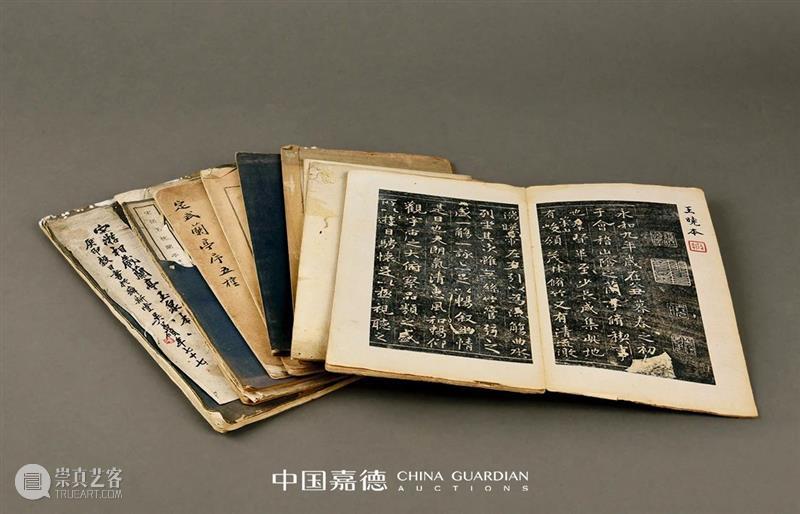 王曉本
永和九年歲在癸丑暮春之初
于會稽山陰之蘭亭脩禊事
也群賢畢至少長咸集此地
有崇領茂林脩竹又有清流激
湍暎帶左右引以為流觴曲水
列坐其次雖無絲竹管弦之
盛一觴一詠亦足以暢敘幽情
是日也天朗氣清惠風和暢仰
觀宇宙之大俯察品類之盛
所以遊目騁懷足以極視聽之
定武蘭亭序五種
宋游相藏蘭亭王曉本
年七十七
中国嘉德 CHINA GUARDIAN
AUCTIONS
崇真艺客
TRUEART.COM